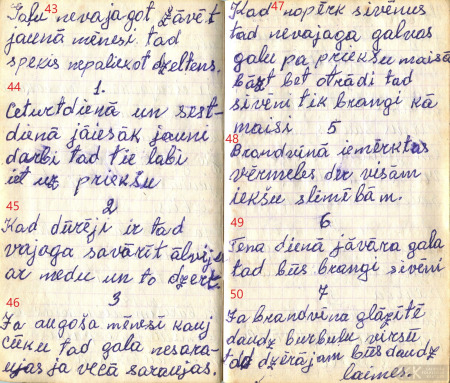 43
Gaļu nevajagot žāvēt
jaunā mēnesī. tad
speķis nepaliekot dzeltens.
44
1.
Ceturtdienā un sest-
dienā jāiesāk jauni
darbi tad tie labi
iet uz priekšu
45
2
Kad dūrēji ir tad
vajaga savārīt alvijas
ar medu un to dzert
46
3
Ja augoša mēnesī kauj
cūku tad gaļa nesara-
ujas ja vecā saraujas.
47
Kad nopērk sivēnus
tad nevajaga galvas
galu pa priekšu maisā
bāzt bet otrādi tad
sivēni tik brangi kā
maisi
5
48
Brandvīnā iemērktas
vērmeles der visām
iekšu slimībām.
49
6
Tēna dienā jāvāra gaļa
tad būs brangi sivēni
50
7
Ja brandvīna glāzītē
daudz burbuļu virsū
tad dzērājam būs daudz
laimes.